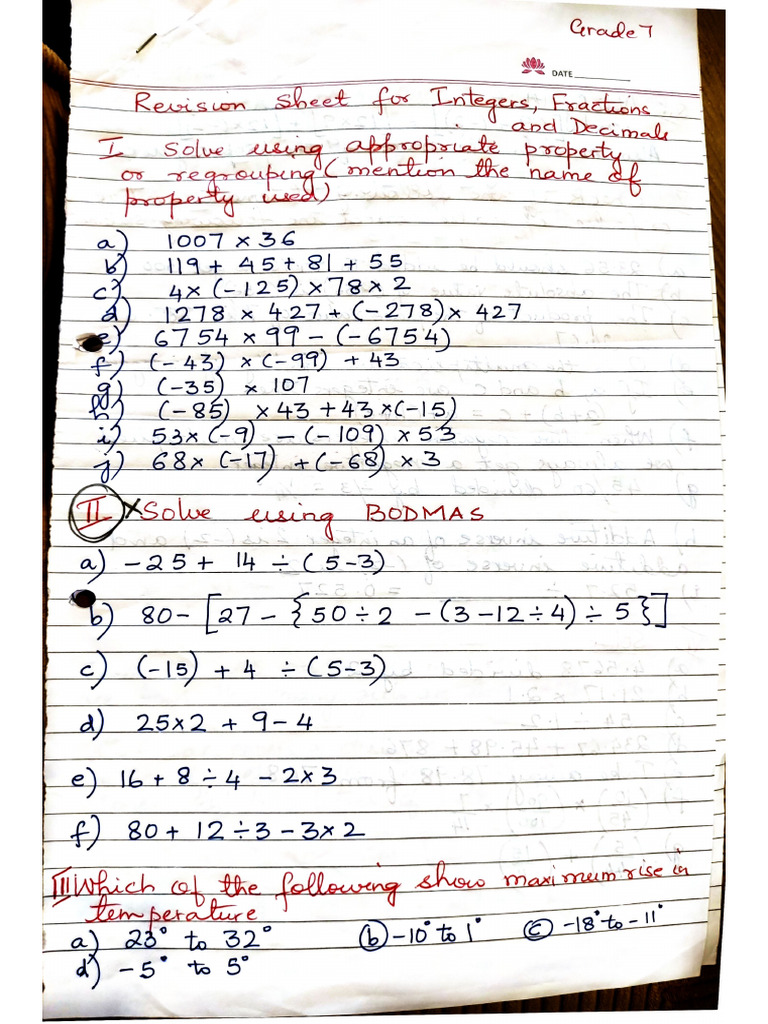 Grade 7
DATE
Revision sheet for Integers, Fractions
and Decimals
I solve using appropriate property
or regrouping (mention the name of
property used)
a) 1007 × 36
b) 119 + 45 + 81 + 55
c) 4 × (-125) × 78 × 2
d) 1278 × 427 + (-278) × 427
e) 6754 × 99 - (-6754)
f) (-43) × (-99) + 43
g) (-35) × 107
h) (-85) × 43 + 43 × (-15)
i) 53 × (-9) - (-109) × 53
j) 68 × (-17) + (-68) × 3
II × Solve using BODMAS
a) -25 + 14 ÷ (5-3)
b) 80 - [27 - {50 ÷ 2 - (3 - 12 ÷ 4) ÷ 5}]
c) (-15) + 4 ÷ (5-3)
d) 25 × 2 + 9 - 4
e) 16 + 8 ÷ 4 - 2 × 3
f) 80 + 12 ÷ 3 - 3 × 2
III Which of the following show maximum rise in
temperature
a) 23° to 32° (b) -10° to 1° (c) -18° to -11°
d) -5° to 5°